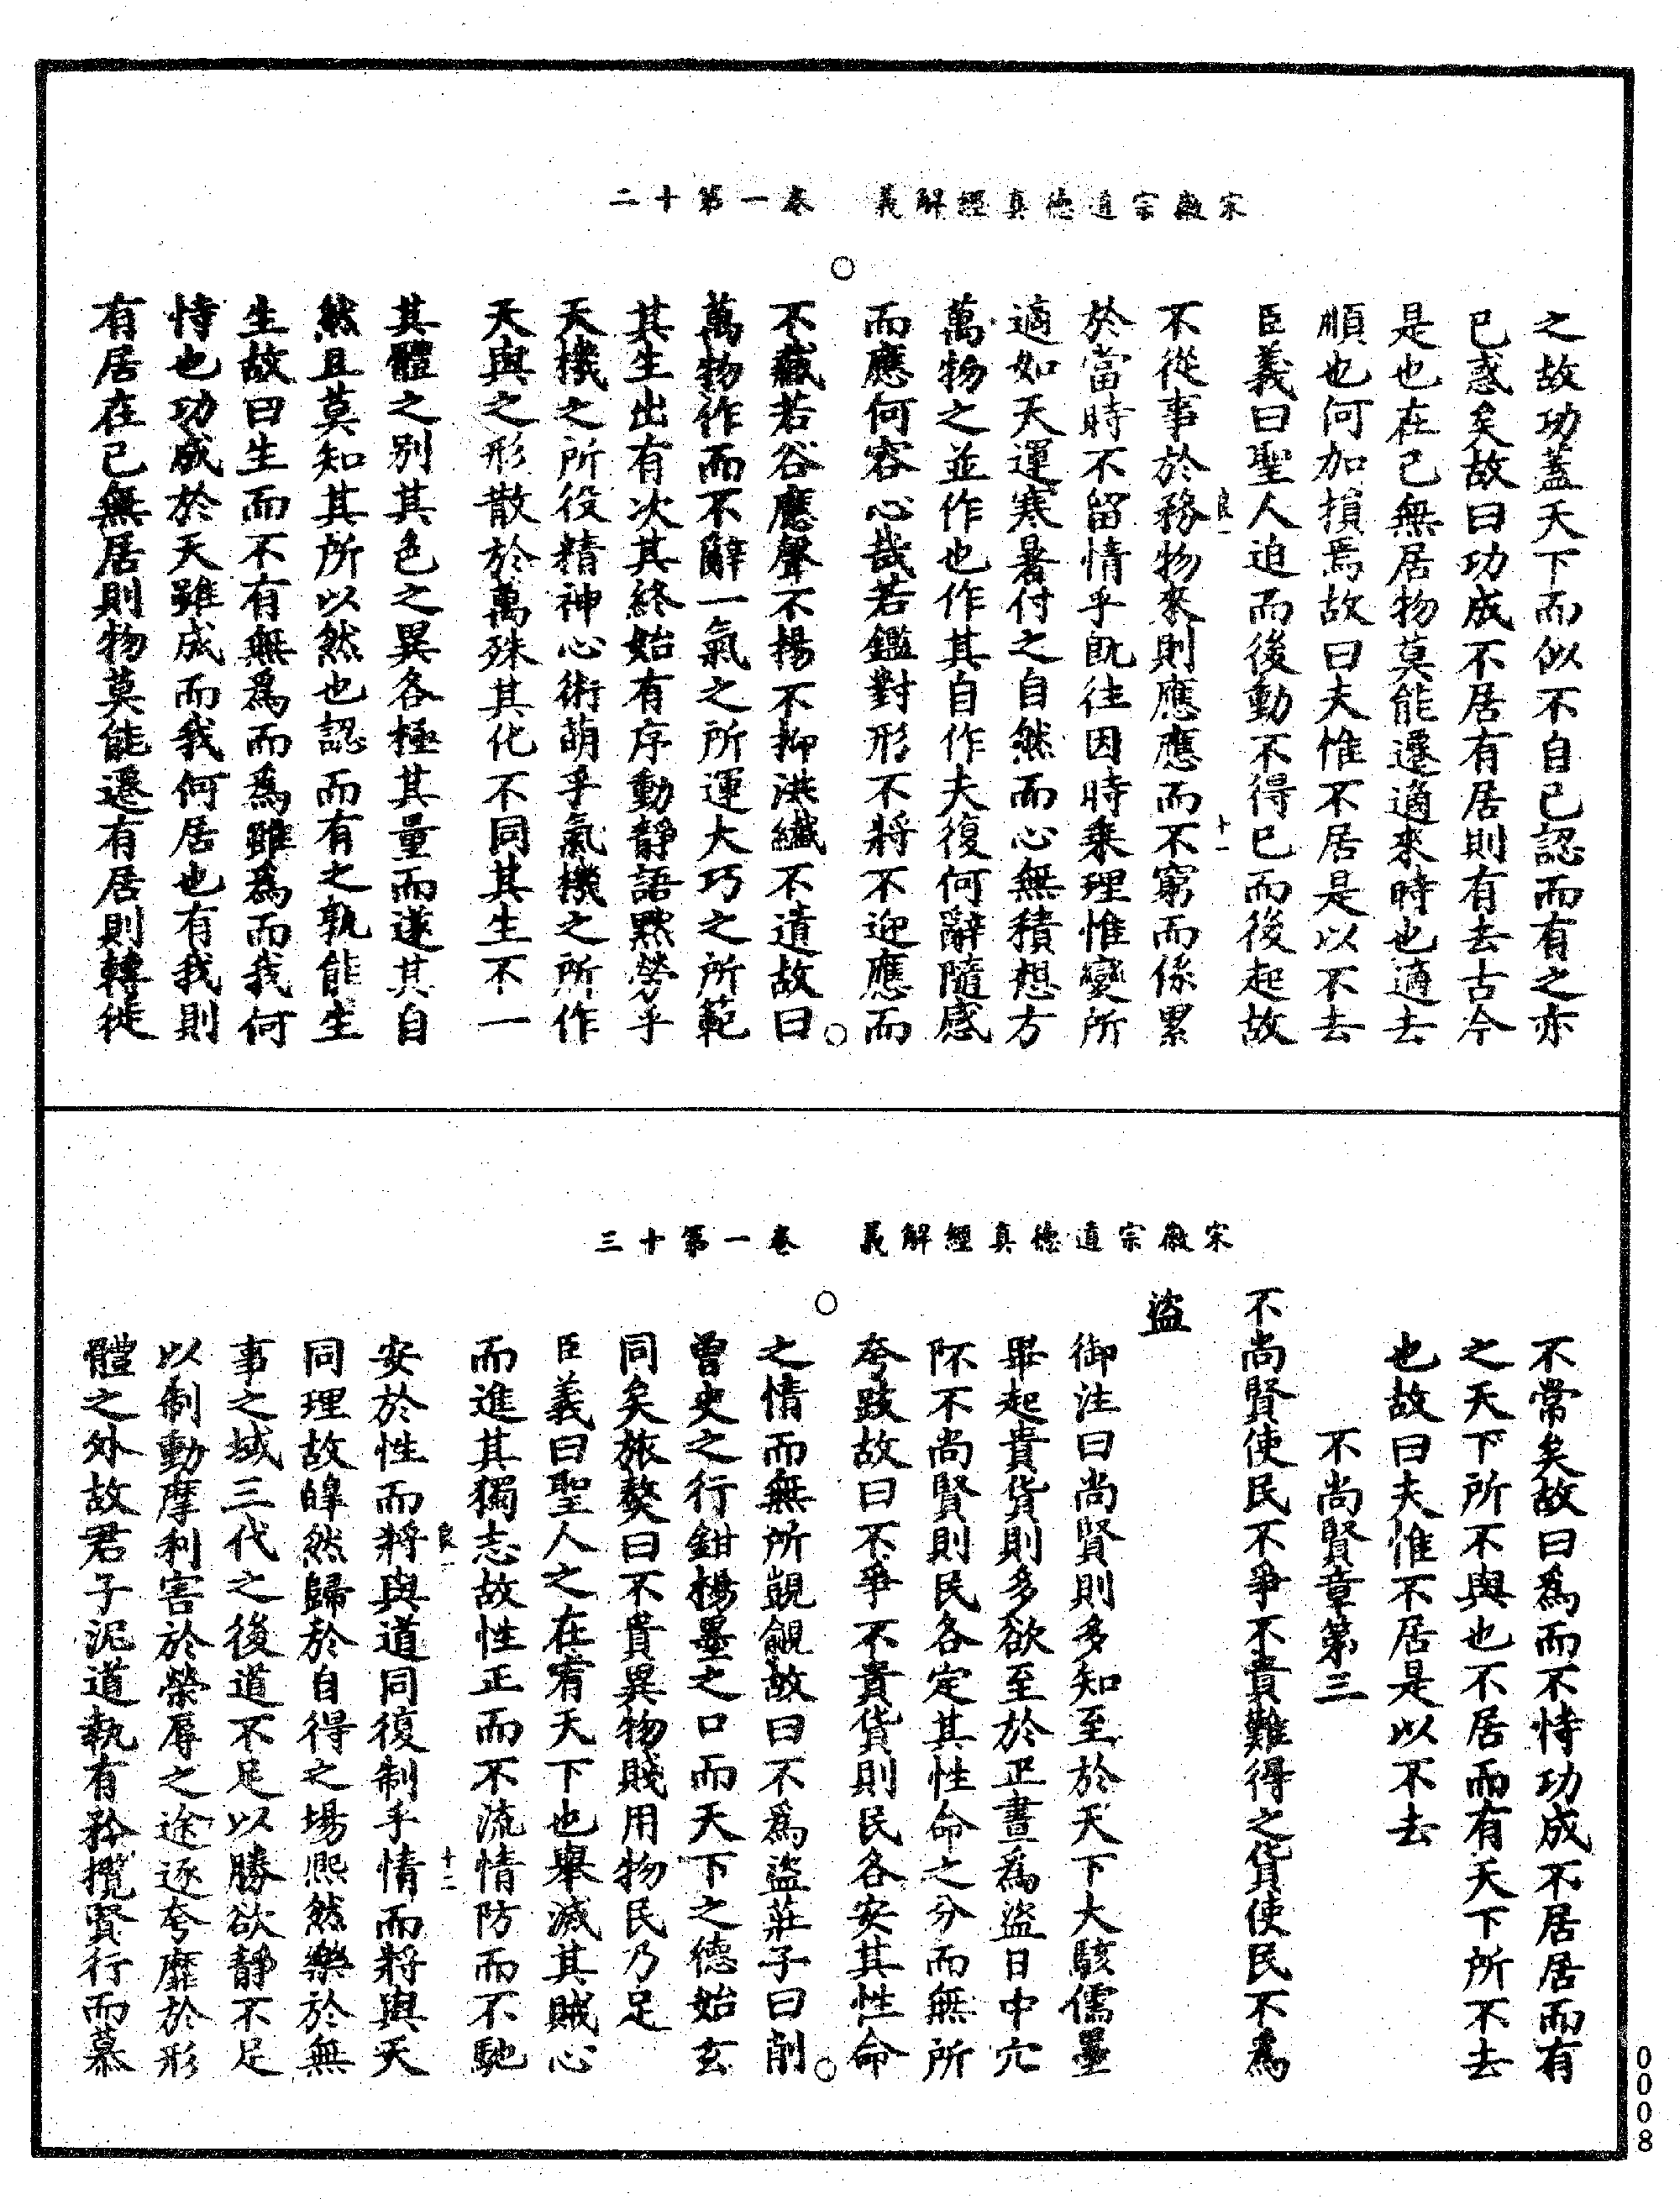 宋徽宗道德真經解義　卷一第十二
之故功蓋天下而似不自己認而有之亦
已惑矣故曰功成不居有居則有去古今
是也在己無居物莫能遷適來時也適去
順也何加損焉故曰夫惟不居是以不去
臣義曰聖人迫而後動不得已而後起故
良一　十一
不從事於務物來則應應而不窮而係累
於當時不留情乎既往因時乘理惟變所
適如天運寒暑付之自然而心無積想方
萬物之並作也作其自作夫復何辭隨感
而應何容心哉若鑑對形不將不迎應而
不藏若谷應聲不揚不抑洪纖不遺故曰
萬物作而不辭一氣之所運大巧之所範
其生出有次其終始有序動靜語默勞乎
天機之所役精神心術萌乎氣機之所作
天與之形散於萬殊其化不同其生不一
其體之別其色之異各極其量而遂其自
然且莫知其所以然也認而有之孰能生
生故曰生而不有無為而為雖為而我何
恃也功成於天雖成而我何居也有我則
有居在己無居則物莫能遷有居則轉徙
宋徽宗道德真經解義　卷一第十三
不常矣故曰為而不恃功成不居居而有
之天下所不與也不居而有天下所不去
也故曰夫惟不居是以不去
不尚賢章第三
不尚賢使民不爭不貴難得之貨使民不為
盜
御注曰尚賢則多知至於天下大駭儒墨
畢起貴貨則多欲至於正晝為盜日中穴
阫不尚賢則民各定其性命之分而無所
夸跂故曰不爭不貴貨則民各安其性命
之情而無所覬覦故曰不為盜莊子曰削
曾史之行鉗楊墨之口而天下之德始玄
同矣旅獒曰不貴異物賤用物民乃足
臣義曰聖人之在宥天下也舉滅其賊心
而進其獨志故性正而不流情防而不馳
良一　十二
安於性而將與道同復制乎情而將與天
同理故皞然歸於自得之場熙然樂於無
事之域三代之後道不足以勝欲靜不足
以制動摩利害於榮辱之途逐夸靡於形
體之外故君子泥道執有矜攬賢行而慕
0008